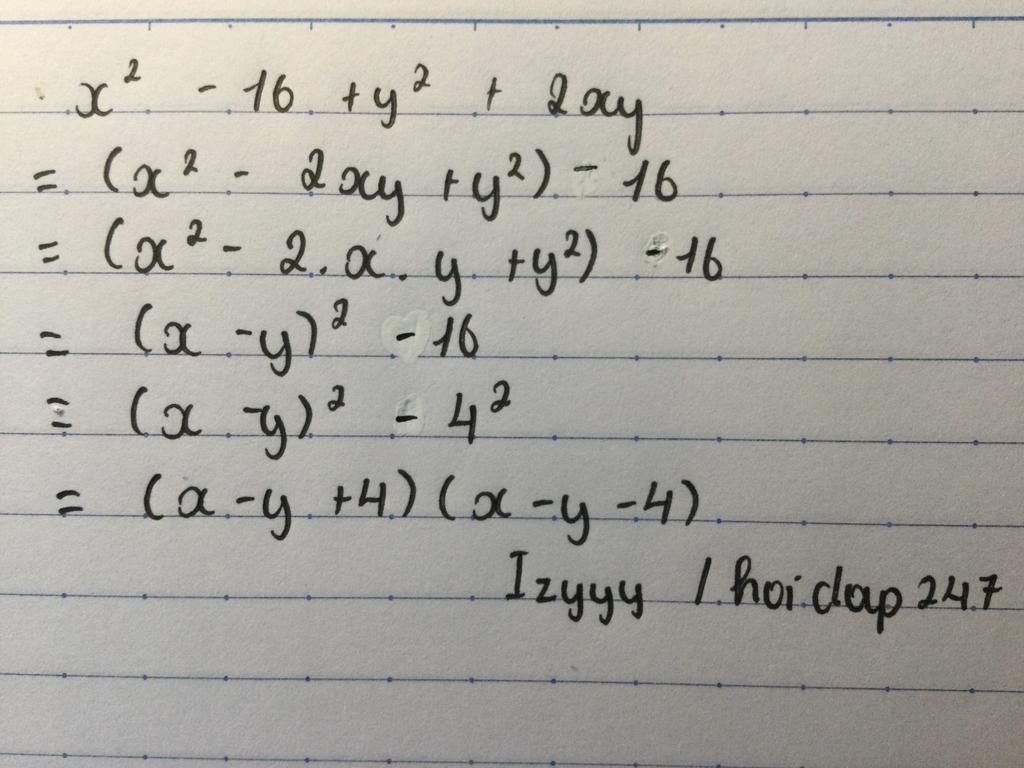 x² - 16 + y² + 2xy
= (x² - 2xy + y²) - 16
= (x² - 2.x.y + y²) - 16
= (x - y)² - 16
= (x - y)² - 4²
= (x - y + 4)(x - y - 4)
Izyyy / hoidap247